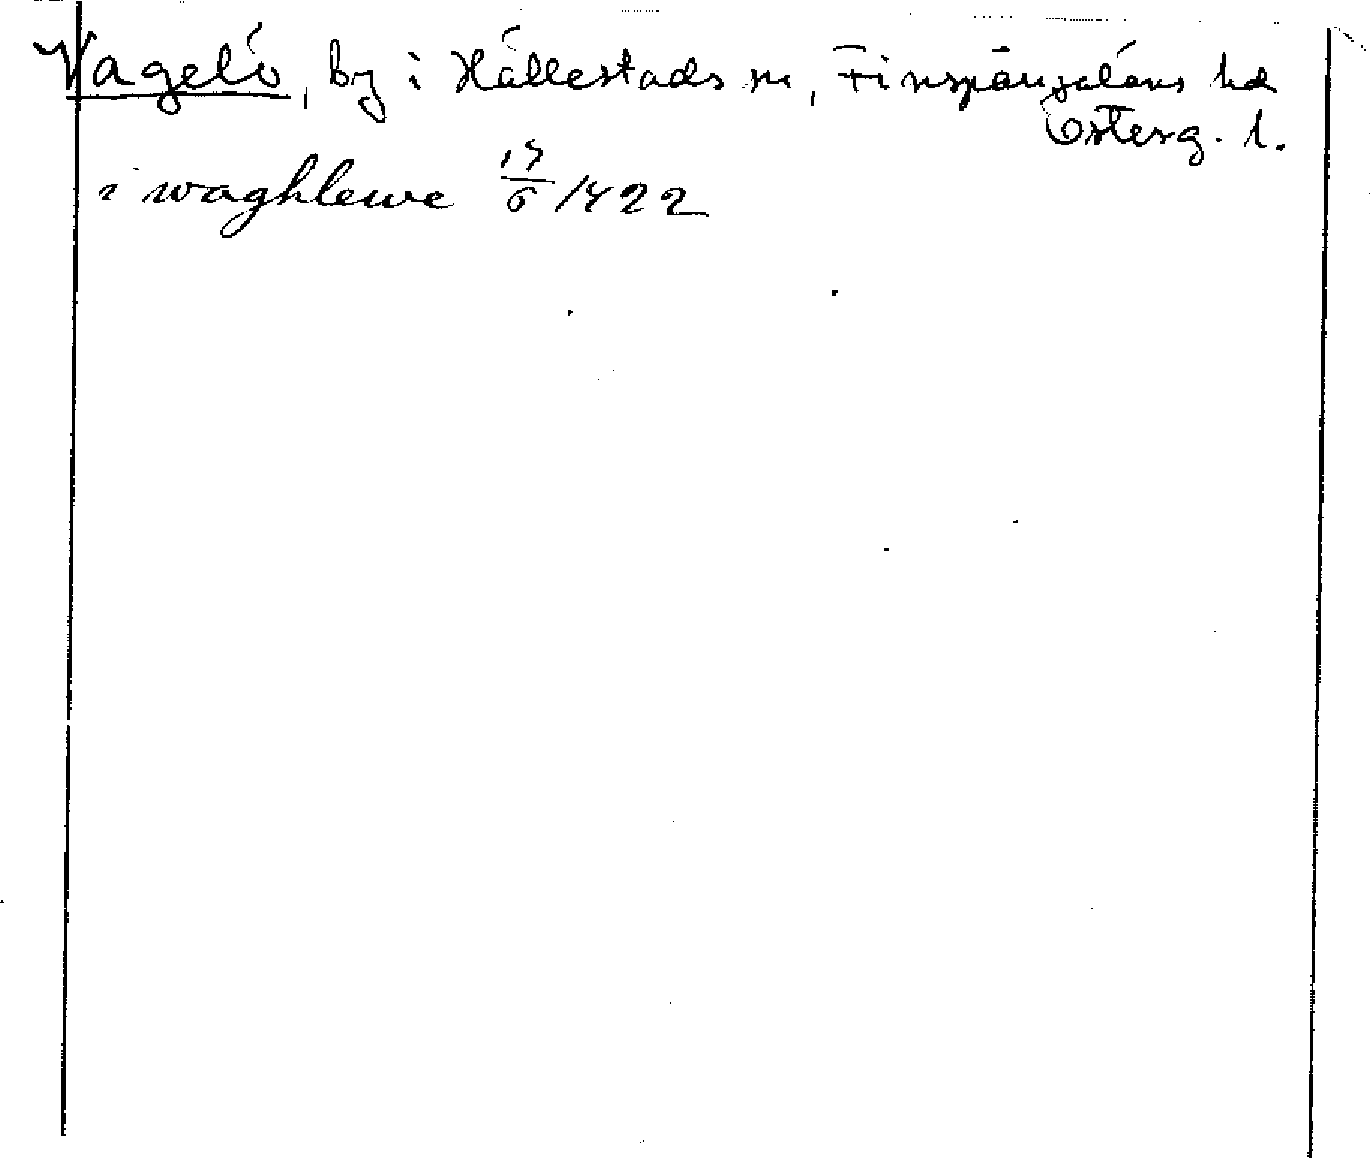 Vagelö, by i Hällestads sn, Finspångaläns hd
Österg. l.
i waghlewe 17/6 1422